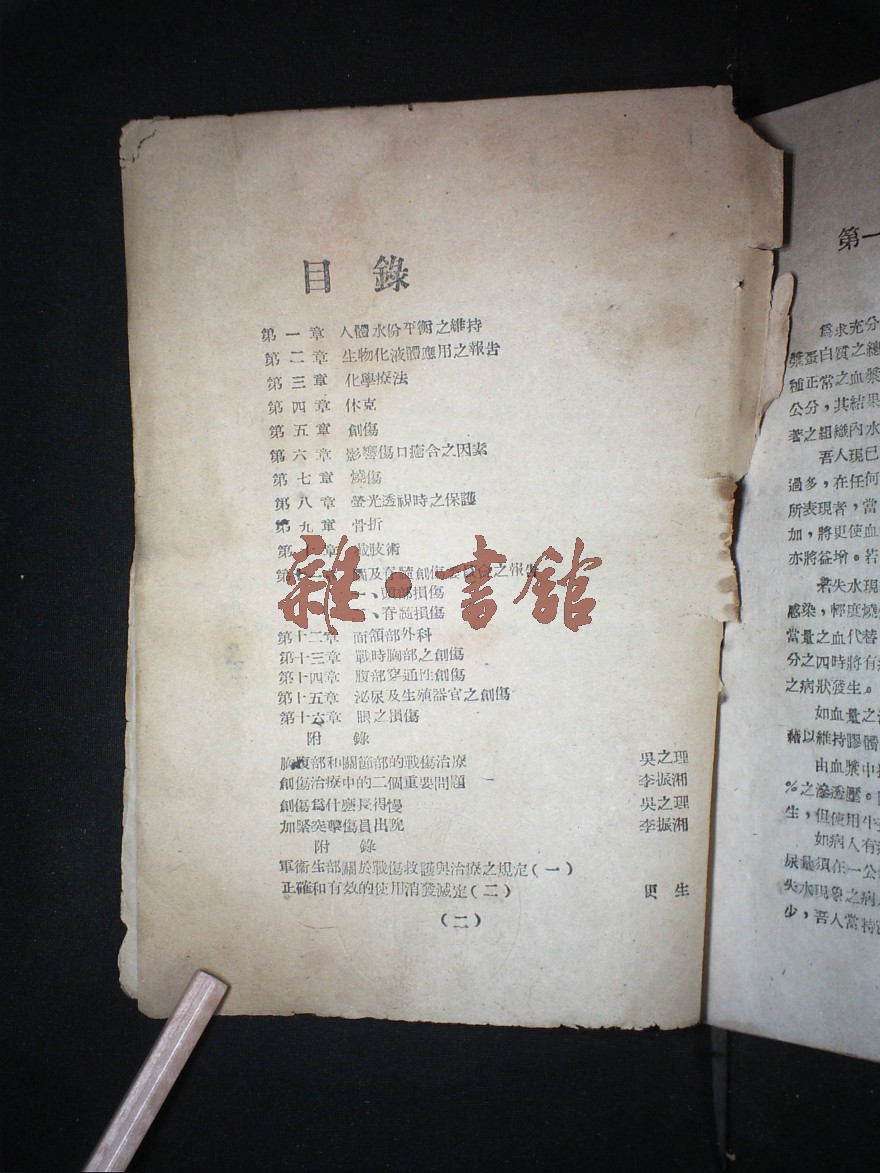 目 錄
第 一 章 人體水份平衡之維持
第 二 章 生物化液體應用之報告
第 三 章 化學療法
第 四 章 休克
第 五 章 創傷
第 六 章 影響傷口癒合之因素
第 七 章 燒傷
第 八 章 螢光透視時之保護
第 九 章 骨折
第 十 章 截肢術
第十一章 腦及脊髓創傷委員會之報告
一、頭部損傷
二、脊髓損傷
第十二章 面頜部外科
第十三章 戰時胸部之創傷
第十四章 腹部穿通性創傷
第十五章 泌尿及生殖器官之創傷
第十六章 眼之損傷
附 錄
胸腹部和關節部的戰傷治療 吳之理
創傷治療中的二個重要問題 李振湘
創傷爲什麽長得慢 吳之理
加緊突擊傷員出院 李振湘
附 錄
軍衛生部關於戰傷救護與治療之規定(一)
正確和有效的使用消發滅定(二) 更 生
(二)
雜·書館
第一
爲求充分
漿蛋白質之總
種正常之血漿
公分，其結果
著之組織內水
吾人現已
過多，在任何
所表現者，當
加，將更使血
亦將益增。若
若失水現
感染，輕度燒
當量之血代替
分之四時將有
之病狀發生。
如血量之
藉以維持膠體
由血漿中
%之滲透壓。
生，但使用
如病人有
尿量須在一公
失水現象之病
少，吾人當持